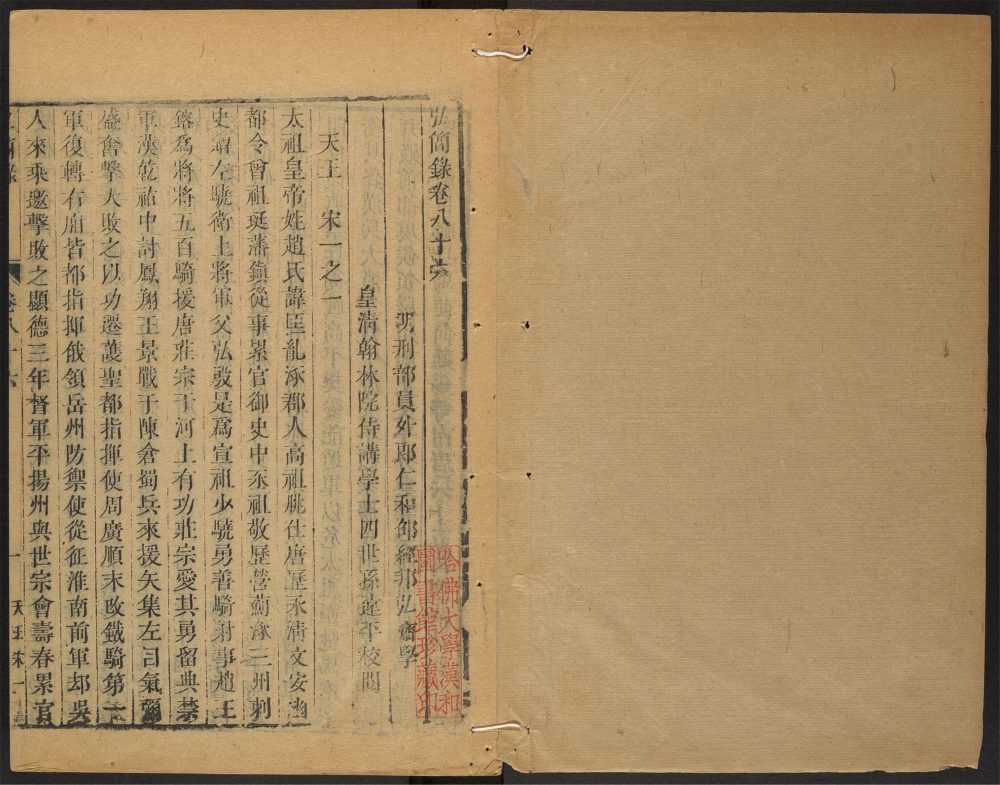 弘簡錄卷八十六
明刑部員外郎仁和邵經邦弘齋學
皇淸翰林院侍講學士四世孫遠平校閱
天王 宋一之一
太祖皇帝姓趙氏諱匡亂涿郡人高祖朓仕唐歷永淸文安幽
都令曾祖珽藩鎭從事累官御史中丞祖敬歷營薊涿三州刺
史贈左驍衛上將軍父弘殷是爲宣祖少驍勇善騎射事趙王
鎔爲將將五百騎援唐莊宗于河上有功莊宗愛其勇留典禁
軍漢乾祐中討鳳翔王景戰于陳倉蜀兵來援矢集左目氣彌
盛奮擊大敗之以功遷護聖都指揮使周廣順末改鐵騎第一
軍復轉右廂皆都指揮俄領岳州防禦使從征淮南前軍却吳
人來乘邀擊敗之顯德三年督軍平揚州與世宗會壽春累官
卷八十六
一
天王宋一
哈佛大學漢和
圖書館珍藏印